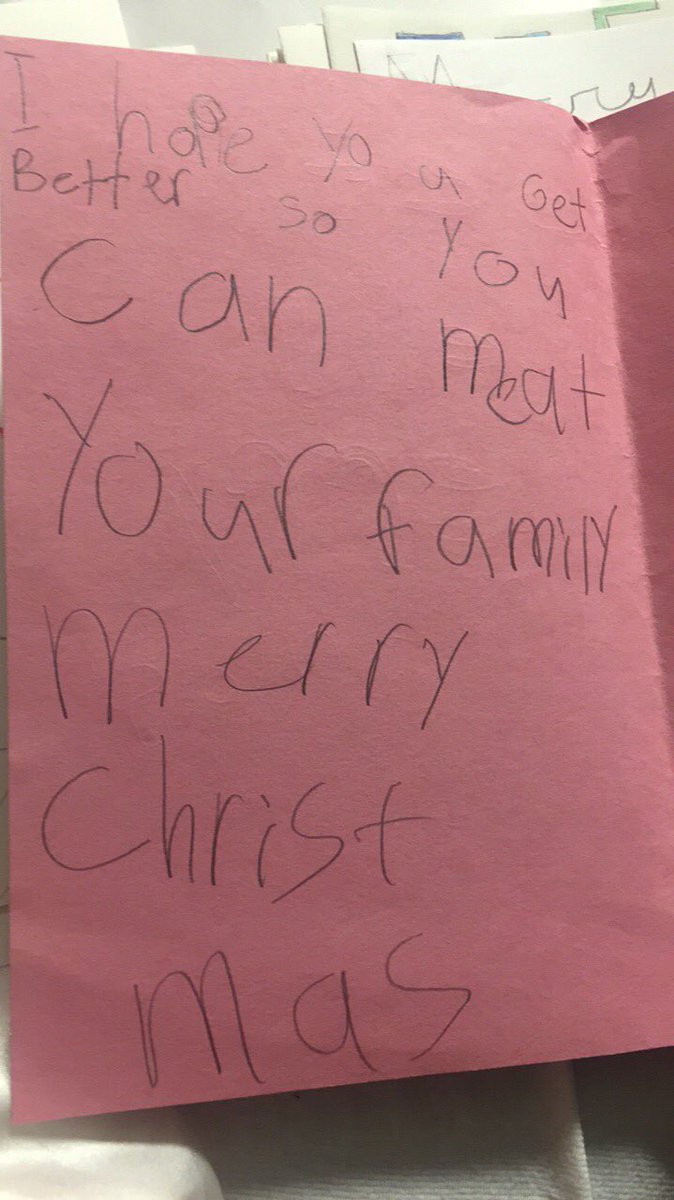 I hope you Get
Better so you
Can meat
Your family
merry
Christ
mas